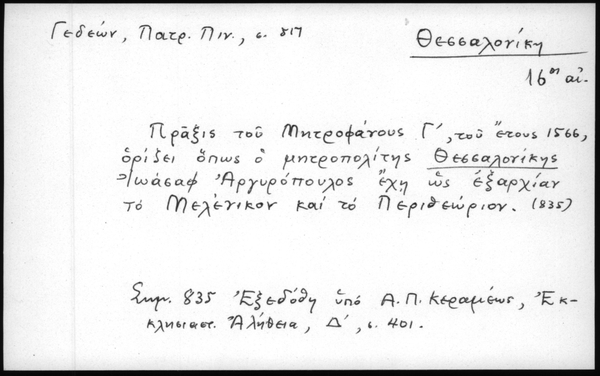 Γεδεών, Πατρ. Πιν., σ. 517
Θεσσαλονίκη
16ος αἰ.
Πρᾶξις τοῦ Μητροφάνους Γ΄, τοῦ ἔτους 1566,
ὁρίζει ὅπως ὁ μητροπολίτης Θεσσαλονίκης
Ἰωάσαφ Ἀργυρόπουλος ἔχη ὡς ἐξαρχίαν
τὸ Μελένικον καὶ τὸ Περιθεώριον. (835)
Σημ. 835 Ἐξεδόθη ὑπό Α. Π. Κεραμέως, Ἐκ-
κλησιαστ. Ἀλήθεια, Δ΄, σ. 401.